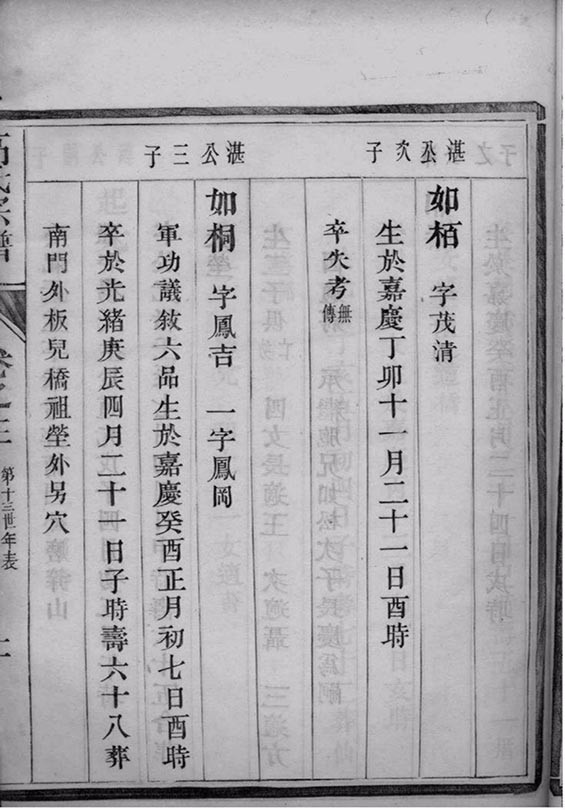 湛公次子
如栢 字茂清
生於嘉慶丁卯十一月二十一日酉時
卒失考無傳
湛公三子
如桐 字鳳吉 一字鳳岡
軍功議敘六品生於嘉慶癸酉正月初七日酉時
卒於光緒庚辰四月二十一日子時壽六十八葬
南門外板兒橋祖塋外另穴
氏宗譜
第十三世年表